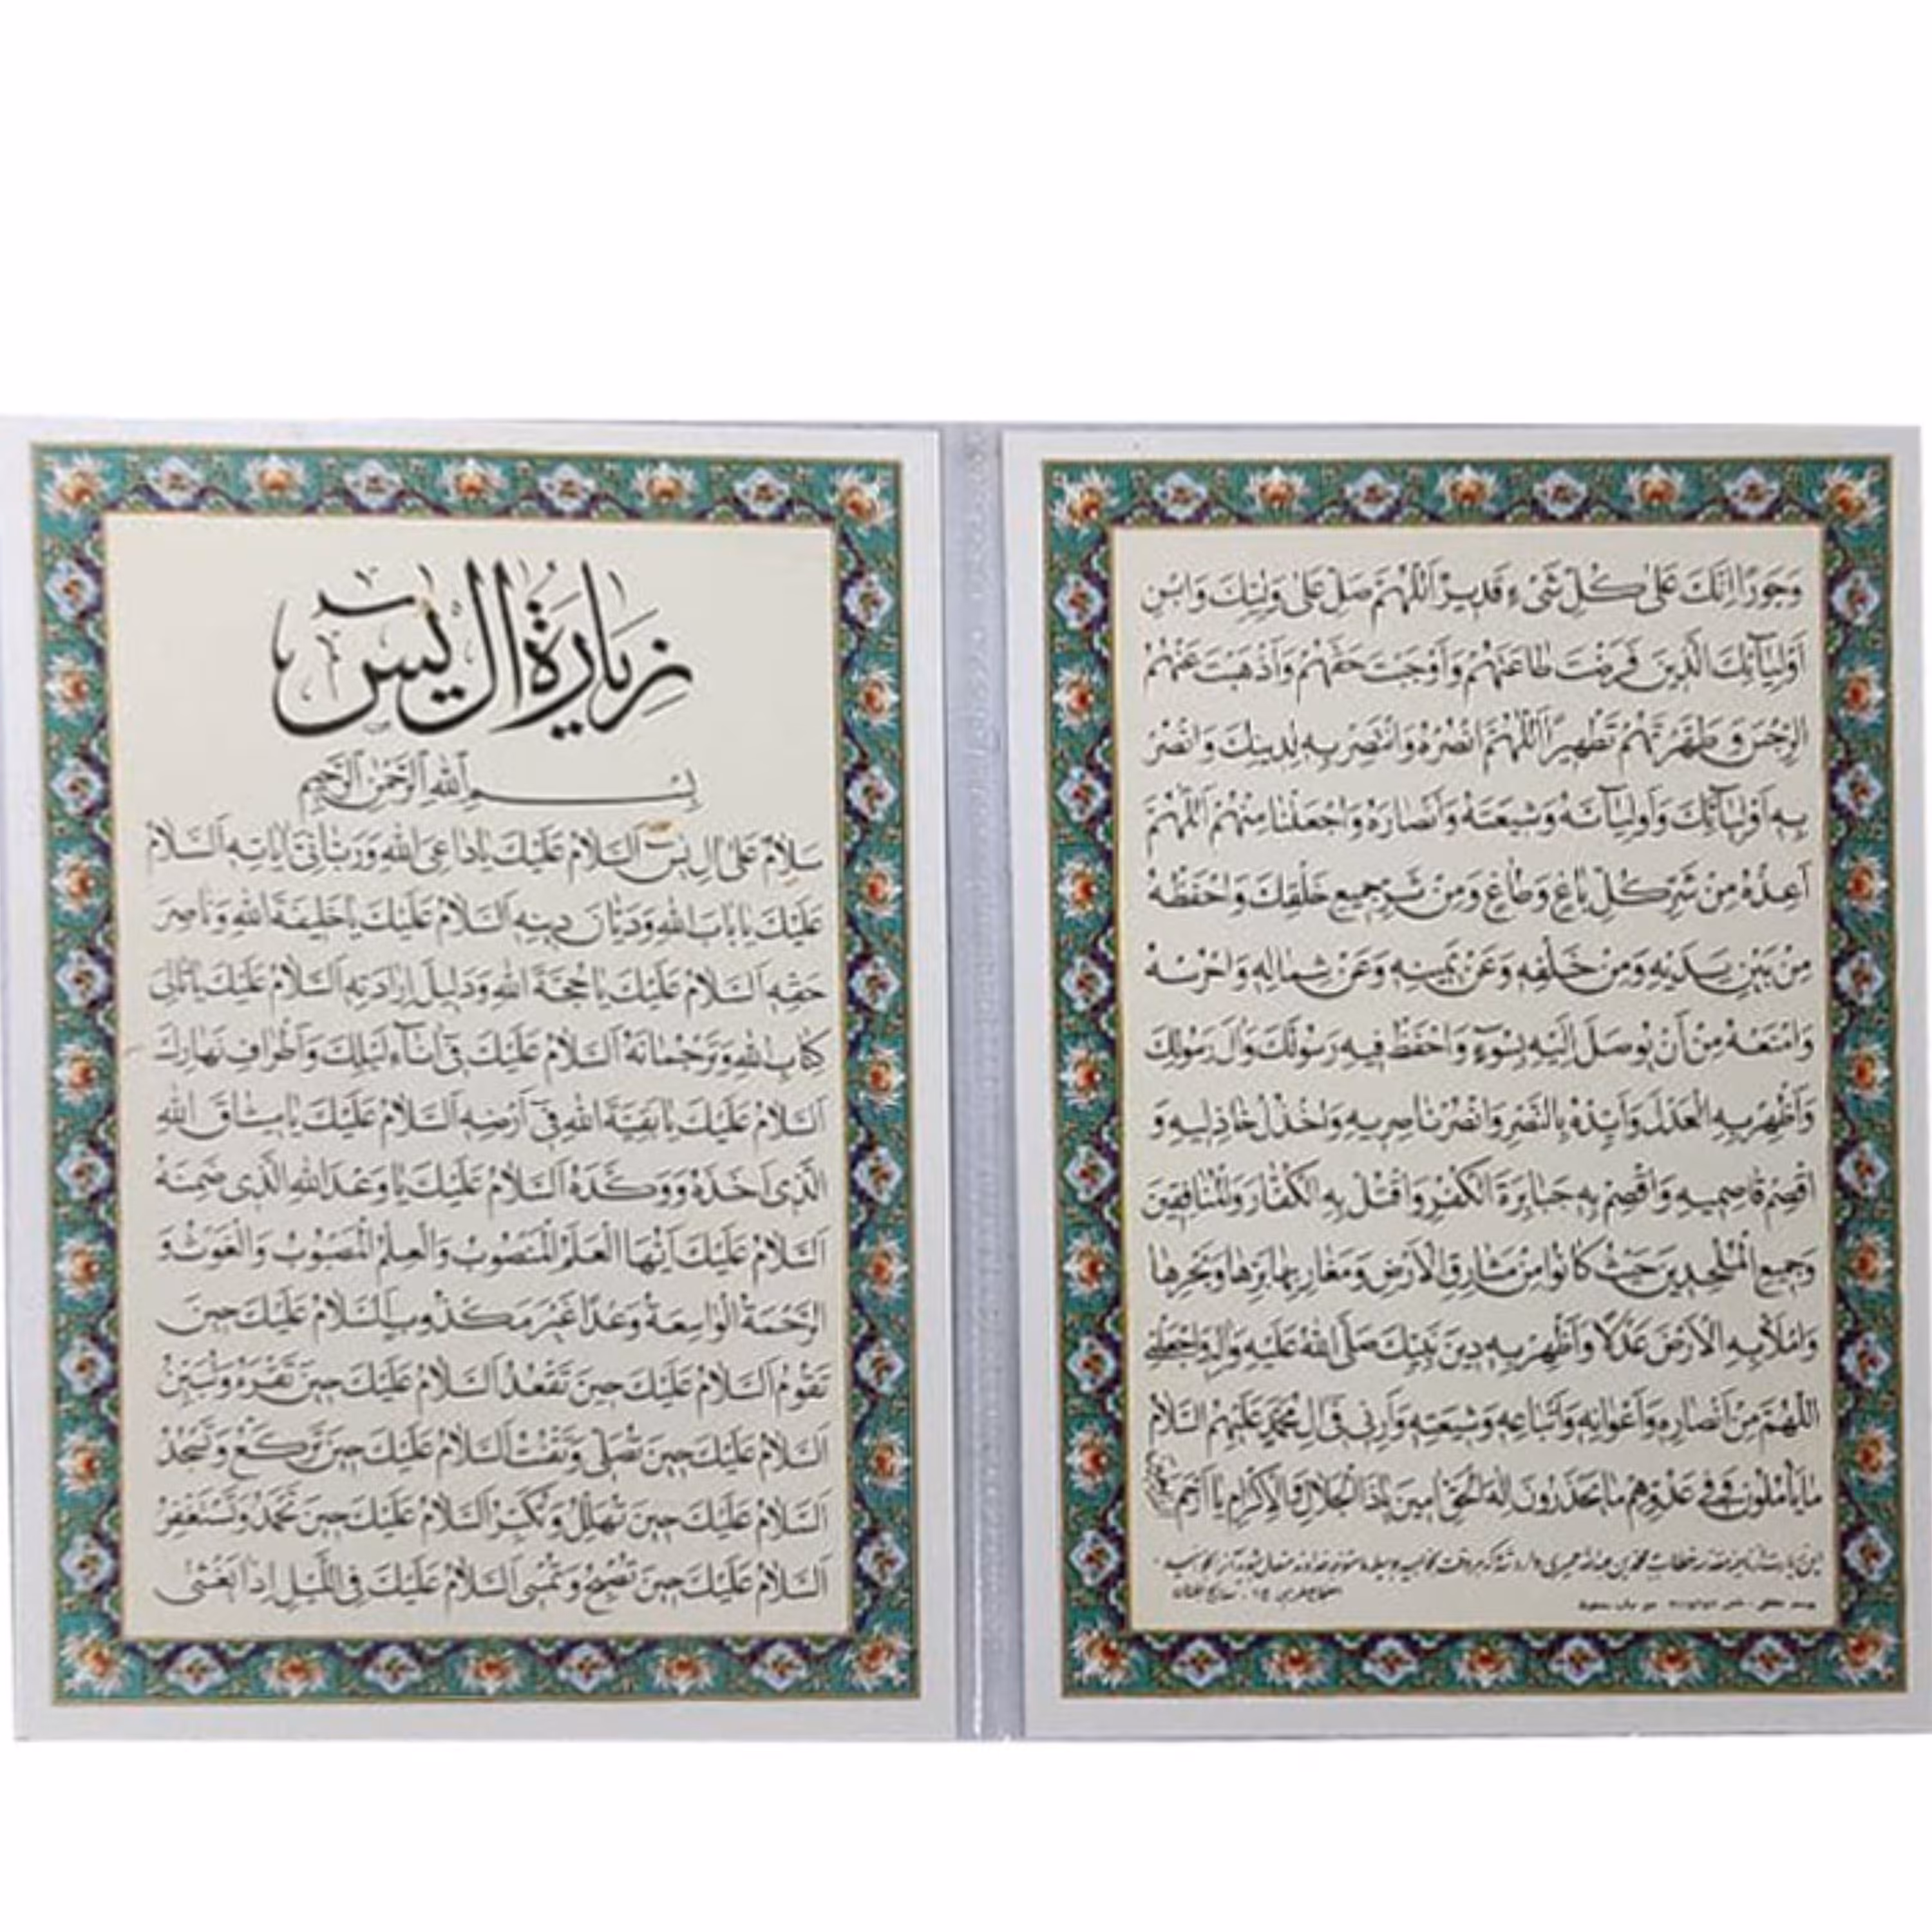 زِيَارَةُ الِ يٰسٓ
بِسْمِ اللهِ الرَّحْمٰنِ الرَّحِيمِ
سَلَامٌ عَلىٰ الِ يٰسٓ اَلسَّلَامُ عَلَيْكَ يَا دَاعِىَ اللهِ وَرَبَّانِىَّ اٰيَاتِهِ اَلسَّلَامُ
عَلَيْكَ يَا بَابَ اللهِ وَدَيَّانَ دِينِهِ اَلسَّلَامُ عَلَيْكَ يَا خَلِيفَةَ اللهِ وَنَاصِرَ
حَقِّهِ اَلسَّلَامُ عَلَيْكَ يَا حُجَّةَ اللهِ وَدَلِيلَ اِرَادَتِهِ اَلسَّلَامُ عَلَيْكَ يَا تَالِىَ
كِتَابِ اللهِ وَتَرْجُمَانَهُ اَلسَّلَامُ عَلَيْكَ فىٓ اٰنَاءِ لَيْلِكَ وَاَطْرَافِ نَهَارِكَ
اَلسَّلَامُ عَلَيْكَ يَا بَقِيَّةَ اللهِ فىٓ اَرْضِهِ اَلسَّلَامُ عَلَيْكَ يَا مِيثَاقَ اللهِ
الَّذِى اَخَذَهُ وَوَكَّدَهُ اَلسَّلَامُ عَلَيْكَ يَا وَعْدَ اللهِ الَّذِى ضَمِنَهُ
اَلسَّلَامُ عَلَيْكَ اَيُّهَا الْعَلَمُ الْمَنْصُوبُ وَالْعِلْمُ الْمَصْبُوبُ وَالْغَوْثُ وَ
الرَّحْمَةُ الْوَاسِعَةُ وَعْدًا غَيْرَ مَكْذُوبٍ اَلسَّلَامُ عَلَيْكَ حِينَ
تَقُومُ اَلسَّلَامُ عَلَيْكَ حِينَ تَقْعُدُ اَلسَّلَامُ عَلَيْكَ حِينَ تَقْرَءُ وَتُبَيِّنُ
اَلسَّلَامُ عَلَيْكَ حِينَ تُصَلِّى وَتَقْنُتُ اَلسَّلَامُ عَلَيْكَ حِينَ تَرْكَعُ وَتَسْجُدُ
اَلسَّلَامُ عَلَيْكَ حِينَ تُهَلِّلُ وَتُكَبِّرُ اَلسَّلَامُ عَلَيْكَ حِينَ تَحْمَدُ وَتَسْتَغْفِرُ
اَلسَّلَامُ عَلَيْكَ حِينَ تُصْبِحُ وَتُمْسِى اَلسَّلَامُ عَلَيْكَ فِى اللَّيْلِ اِذَا يَغْشىٰ
وَجَوْرًا اِنَّكَ عَلىٰ كُلِّ شَىْءٍ قَدِيرٌ اَللّٰهُمَّ صَلِّ عَلىٰ وَلِيِّكَ وَابْنِ
اَوْلِيَآئِكَ الَّذِينَ فَرَضْتَ طَاعَتَهُمْ وَاَوْجَبْتَ حَقَّهُمْ وَاَذْهَبْتَ عَنْهُمُ
الرِّجْسَ وَطَهَّرْتَهُمْ تَطْهِيرًا اَللّٰهُمَّ انْصُرْهُ وَانْتَصِرْ بِهِ لِدِينِكَ وَانْصُرْ
بِهِ اَوْلِيَآئَكَ وَاَوْلِيَآئَهُ وَشِيعَتَهُ وَاَنْصَارَهُ وَاجْعَلْنَا مِنْهُمْ اَللّٰهُمَّ
اَعِذْهُ مِنْ شَرِّ كُلِّ بَاغٍ وَطَاغٍ وَمِنْ شَرِّ جَمِيعِ خَلْقِكَ وَاحْفَظْهُ
مِنْ بَيْنِ يَدَيْهِ وَمِنْ خَلْفِهِ وَعَنْ يَمِينِهِ وَعَنْ شِمَالِهِ وَاحْرُسْهُ
وَامْنَعْهُ مِنْ اَنْ يُوصَلَ اِلَيْهِ بِسُوٓءٍ وَاحْفَظْ فِيهِ رَسُولَكَ وَالَ رَسُولِكَ
وَاَظْهِرْ بِهِ الْعَدْلَ وَاَيِّدْهُ بِالنَّصْرِ وَانْصُرْ نَاصِرِيهِ وَاخْذُلْ خَاذِلِيهِ وَ
اقْصِمْ قَاصِمِيهِ وَاقْصِمْ بِهِ جَبَابِرَةَ الْكُفْرِ وَاقْتُلْ بِهِ الْكُفَّارَ وَالْمُنَافِقِينَ
وَجَمِيعَ الْمُلْحِدِينَ حَيْثُ كَانُوا مِنْ مَشَارِقِ الْاَرْضِ وَمَغَارِبِهَا بَرِّهَا وَبَحْرِهَا
وَامْلَأْ بِهِ الْاَرْضَ عَدْلًا وَاَظْهِرْ بِهِ دِينَ نَبِيِّكَ صَلَّى اللهُ عَلَيْهِ وَالِهِ وَاجْعَلْنِى
اللّٰهُمَّ مِنْ اَنْصَارِهِ وَاَعْوَانِهِ وَاَتْبَاعِهِ وَشِيعَتِهِ وَاَرِنِى فِى الِ مُحَمَّدٍ عَلَيْهِمُ السَّلَامُ
مَا يَأْمُلُونَ وَفِى عَدُوِّهِمْ مَا يَحْذَرُونَ اِلٰهَ الْحَقِّ اٰمِينَ يَا ذَا الْجَلَالِ وَالْاِكْرَامِ يَا اَرْحَمَ